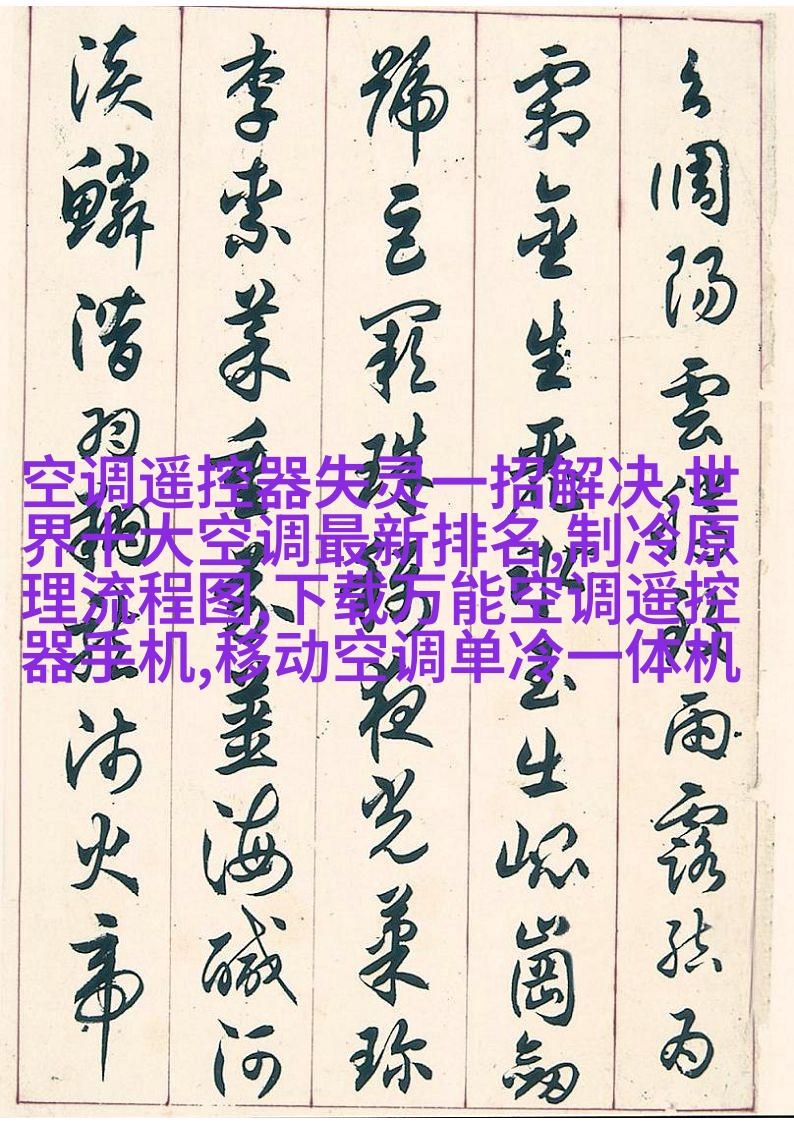 呂調陽雲騰致雨露結為
霜金生麗水玉出崐崗劍
號巨闕珠稱夜光菓珍
李柰菜重芥薑海醎河
淡鱗潛羽翔龍師火帝
空调遥控器失灵一招解决,世
界十大空调最新排名,制冷原
理流程图,下载万能空调遥控
器手机,移动空调单冷一体机